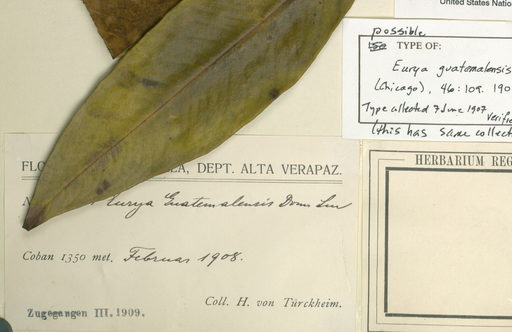 United States Nation
possible
TYPE OF:
Eurya guatemalensis
(Chicago), 46:109. 190
Type collected 7 June 1907
Verifie
(this has same collect
HERBARIUM REG
FLO LA, DEPT. ALTA VERAPAZ.
Eurya Guatemalensis Donn Sm
Coban 1350 met. Februar 1908.
Coll. H. von Türckheim.
Zugegangen III. 1909.